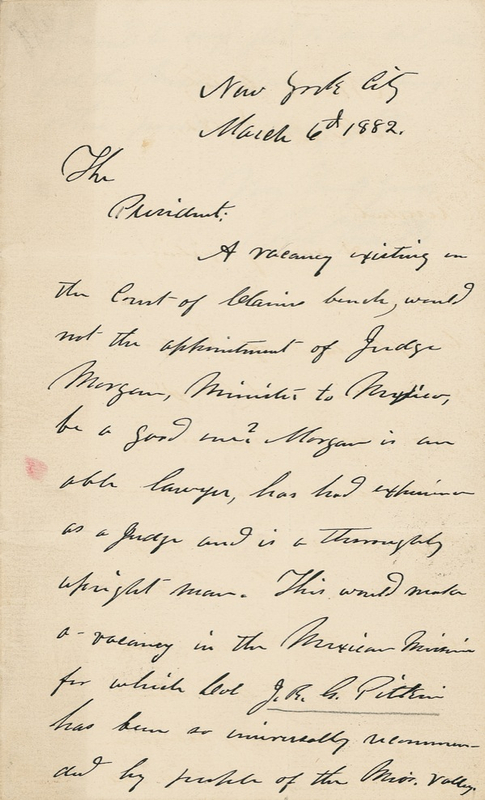 New York City
March 6th 1882.
The
President;
A vacancy existing on
the Court of Claims bench, would
not the appointment of Judge
Morgan, Minister to Mexico,
be a good one? Morgan is an
able lawyer, has had experience
as a Judge and is a thoroughly
upright man. This would make
a vacancy in the Mexican Mission
for which Col J. R. G. Pitkin
has been so universally recommen-
ded by people of the Miss. Valley.